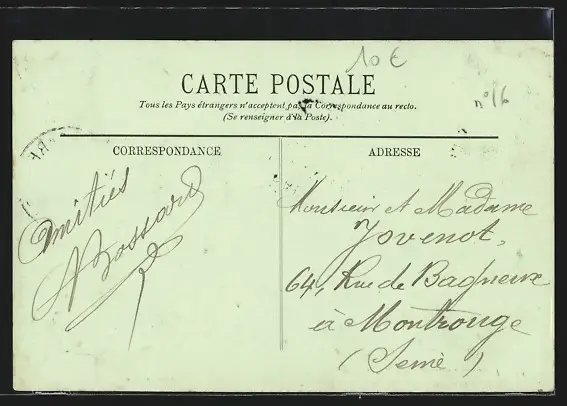 10 €
CARTE POSTALE
n° 16
Tous les Pays étrangers n'acceptent pas la Correspondance au recto.
(Se renseigner à la Poste).
CORRESPONDANCE
ADRESSE
Amitiés
Bossard
Monsieur et Madame
Jovenot,
64, Rue de Bagneux
à Montrouge
(Seine)